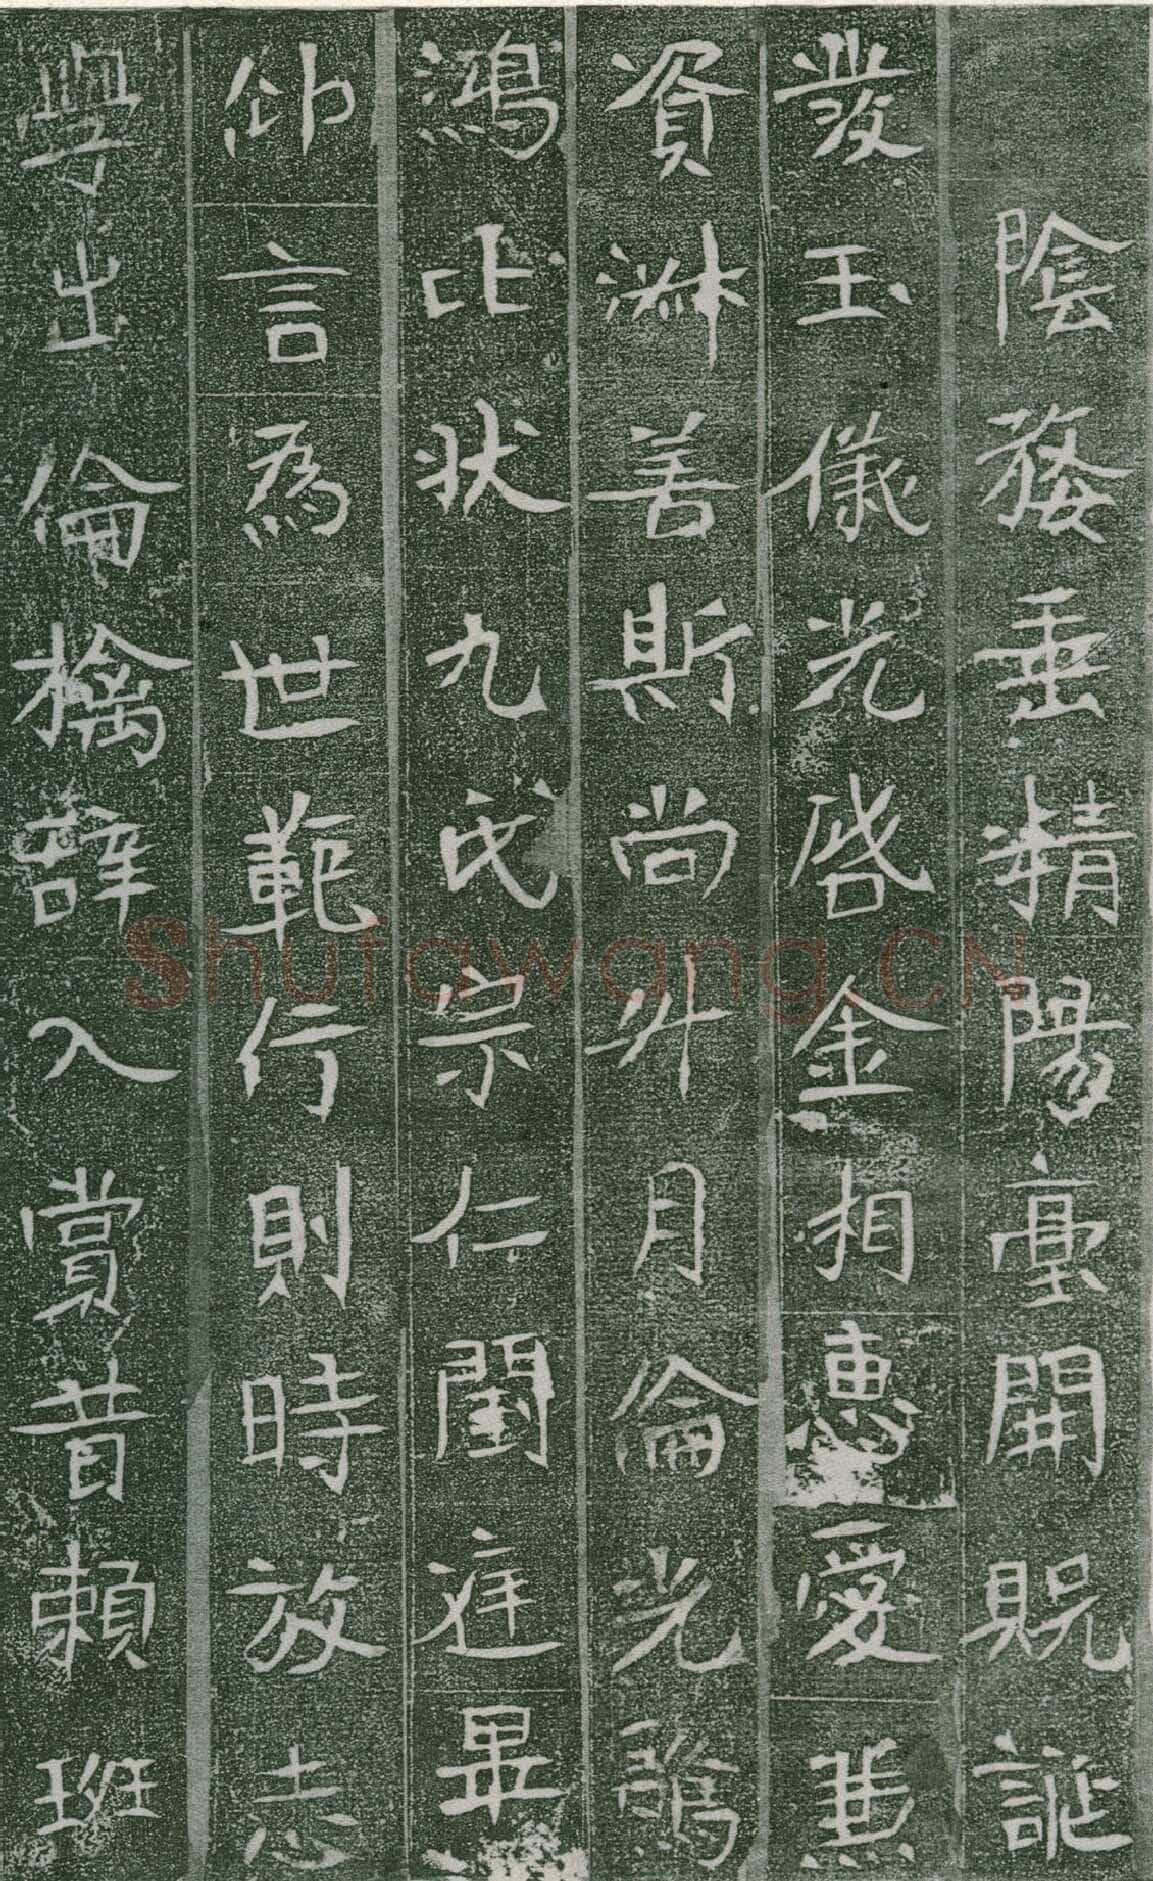 陰婺垂精陽臺開貺誕
發玉儀光啓金相惠愛兼
資淑善斯尚升月倫光
鴻比狀九氏宗仁閨庭畢
仰言為世範行則時放志
學出倫摛辭入賞昔賴班
Shufawang.CN